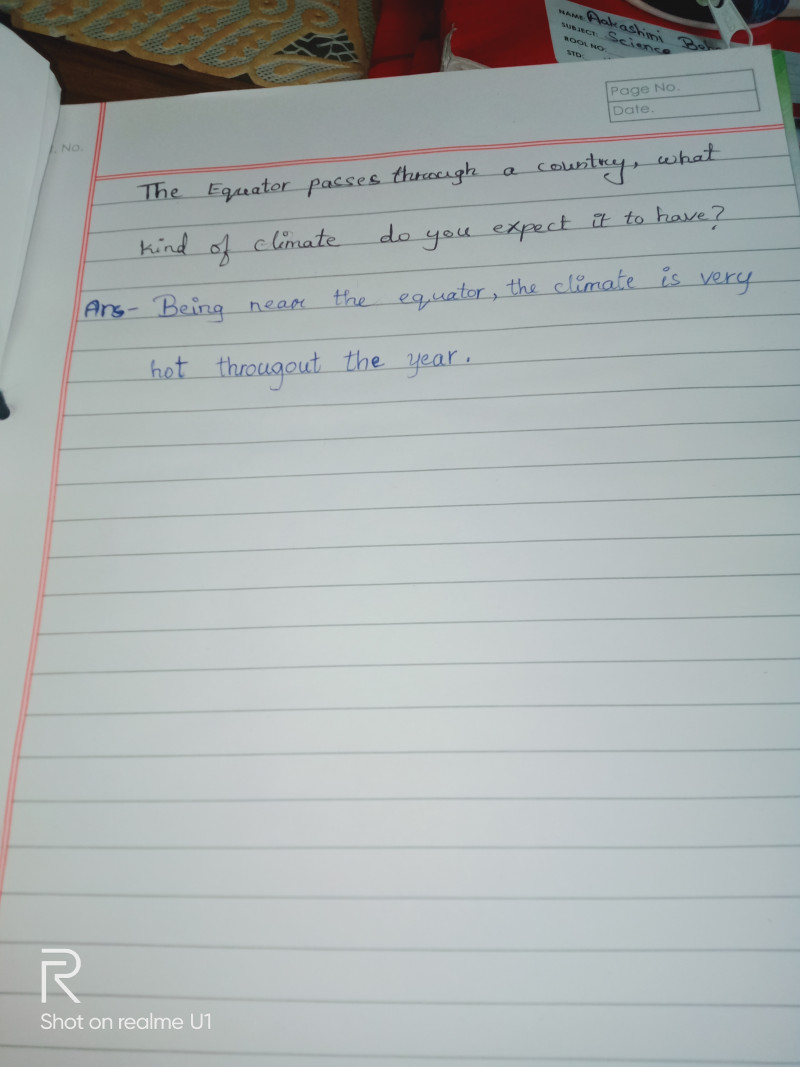 NAME: Aakashini
SUBJECT: Science
ROOL NO.
STD:
Page No.
Date.
. No.
The Equator passes through a country, what
kind of climate do you expect it to have?
Ans- Being near the equator, the climate is very
hot througout the year.
R
Shot on realme U1